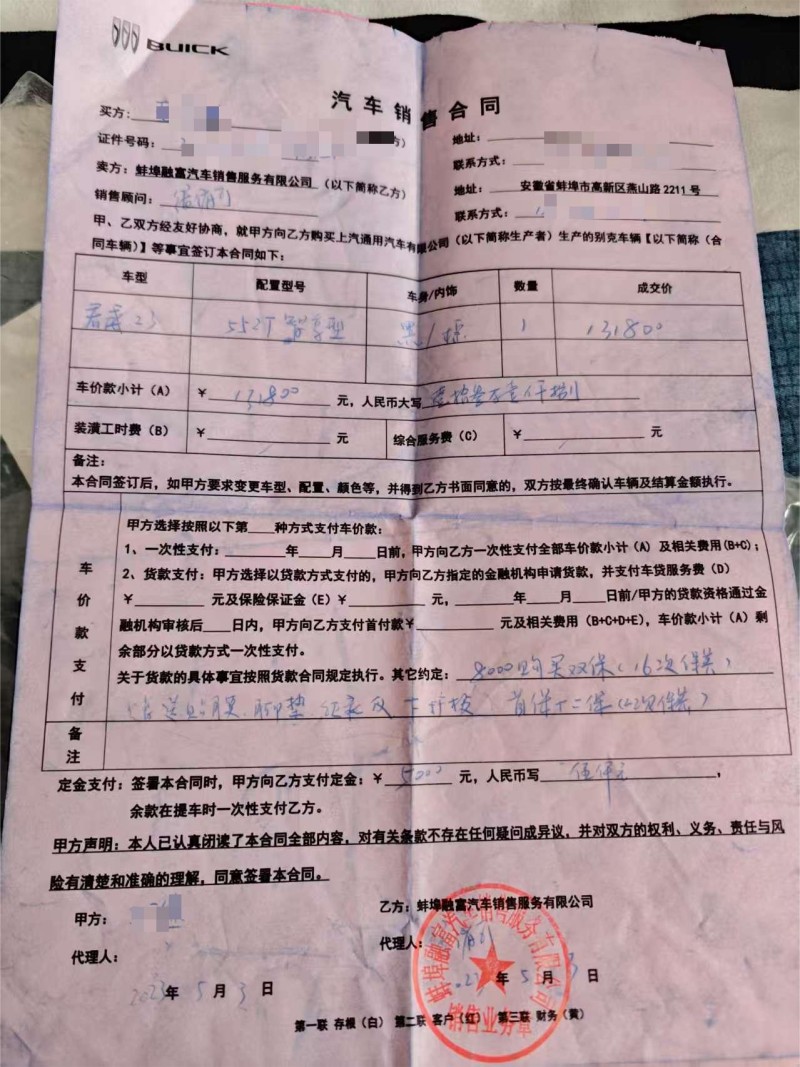 BUICK
汽车销售合同
买方：
证件号码： 方）
地址：
联系方式：
卖方：蚌埠融富汽车销售服务有限公司（以下简称乙方）
地址：安徽省蚌埠市高新区燕山路2211号
销售顾问：
联系方式：
甲、乙双方经友好协商，就甲方向乙方购买上汽通用汽车有限公司（以下简称生产者）生产的别克车辆【以下简称（合
同车辆）】等事宜签订本合同如下：
车型 配置型号 车身/内饰 数量 成交价
君威23 552T 智享型 黑/标 1 131800
车价款小计（A） ￥131800元，人民币大写壹拾叁万壹仟捌
装潢工时费（B） ￥ 元 综合服务费（C） ￥ 元
备注：
本合同签订后，如甲方要求变更车型、配置、颜色等，并得到乙方书面同意的，双方按最终确认车辆及结算金额执行。
车价款支付
甲方选择按照以下第____种方式支付车价款：
1、一次性支付：________年____月____日前，甲方向乙方一次性支付全部车价款小计（A）及相关费用(B+C)；
2、货款支付：甲方选择以贷款方式支付的，甲方向乙方指定的金融机构申请货款，并支付车贷服务费（D）
￥________元及保险保证金（E）￥________元，________年____月____日前/甲方的贷款资格通过金
融机构审核后____日内，甲方向乙方支付首付款￥________元及相关费用（B+C+D+E)，车价款小计（A）剩
余部分以贷款方式一次性支付。
关于货款的具体事宜按照货款合同规定执行。其它约定：8000购买双保（16次保养）
送贴膜、脚垫 记录仪 首保+二保（2次保养）
备注
定金支付：签署本合同时，甲方向乙方支付定金：￥5000元，人民币写伍仟元，
余款在提车时一次性支付乙方。
甲方声明：本人已认真闭读了本合同全部内容，对有关条款不存在任何疑问成异议，并对双方的权利、义务、责任与风
险有清楚和准确的理解，同意签署本合同。
甲方：
乙方：蚌埠融富汽车销售服务有限公司
代理人：
代理人：
2023年5月3日
2023年5月3日
蚌埠融富汽车销售服务有限公司
销售业务章
第一联 存根（白） 第二联 客户（红） 第三联 财务（黄）